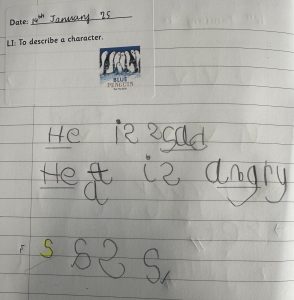 Date: 14th January 25
LI: To describe a character.
BLUE
PENGUIN
He is sad
He is angry
F S S S S